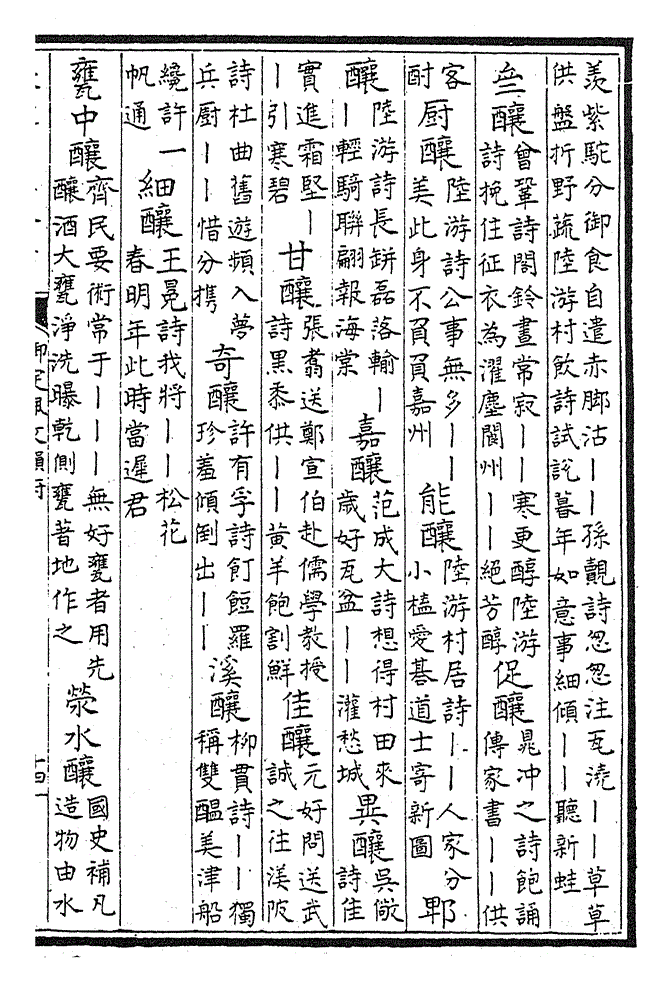 羨紫駝分御食自遣赤脚沽丨丨孫覿詩忽忽注瓦澆丨丨草草
供盤折野蔬陸游村飲詩試說暮年如意事細傾丨丨聽新蛙
亝釀
曾鞏詩閤鈴晝常寂丨丨寒更醇陸游
詩挽住征衣為濯塵閬州丨丨絕芳醇
促釀
晁冲之詩飽誦
傳家書丨丨供
客
酎
厨釀
陸游詩公事無多丨丨
美此身不負負嘉州
能釀
陸游村居詩丨丨人家分
小榼愛碁道士寄新圖
郫
釀
陸游詩長缾磊落輸丨
丨輕騎聯翩報海棠
嘉釀
范成大詩想得村田來
歲好瓦盆丨丨灌愁城
異釀
吳儆
詩佳
實進霜堅丨
丨引寒碧
甘釀
張翥送鄭宣伯赴儒學教授
詩黑黍供丨丨黃羊飽割鮮
佳釀
元好問送武
誠之往渼陂
詩杜曲舊遊頻入夢
兵厨丨丨惜分携
奇釀
許有孚詩飣餖羅
珍羞傾倒出丨丨
溪釀
柳貫詩丨丨獨
稱雙醞美津船
纔許一
帆通
細釀
王冕詩我將丨丨松花
春明年此時當遲君
甕中釀
齊民要術常于丨丨丨無好甕者用先
釀酒大甕淨洗曝乾側甕著地作之
滎水釀
國史補凡
造物由水